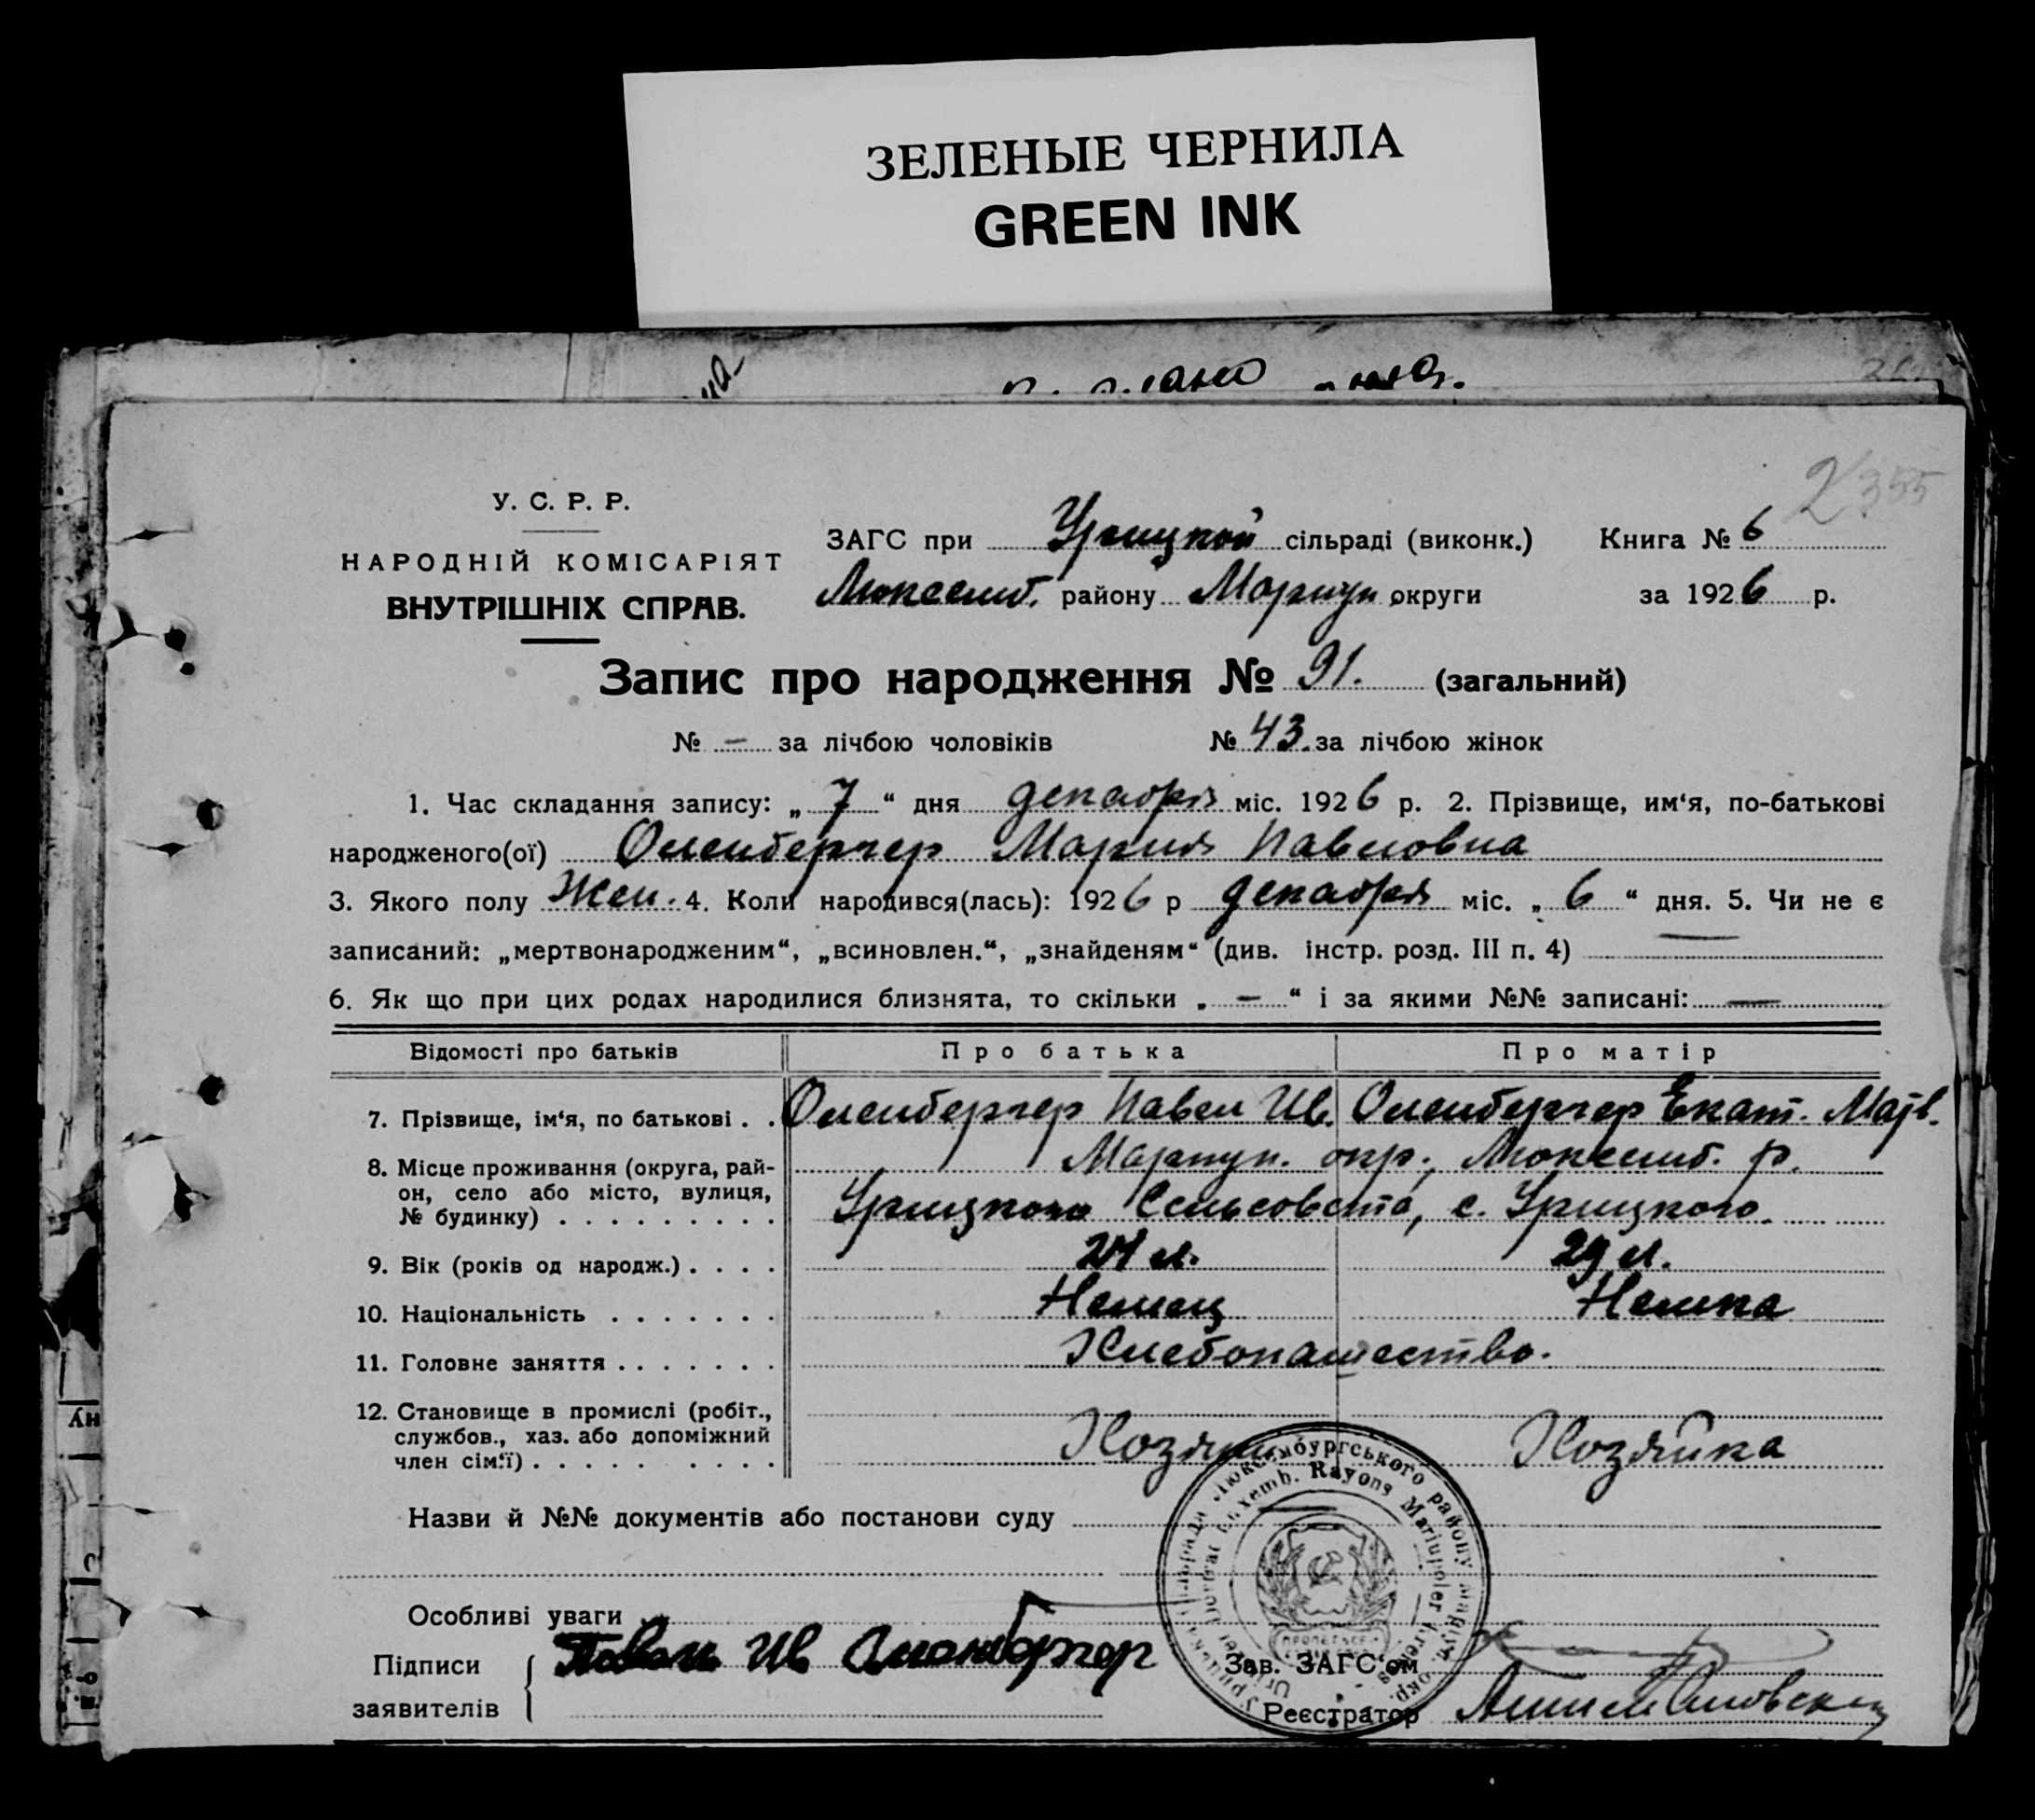 ЗЕЛЕНЫЕ ЧЕРНИЛА
GREEN INK
2 355
У. С. Р. Р.
НАРОДНІЙ КОМІСАРІЯТ
ВНУТРІШНІХ СПРАВ.
ЗАГС при Урицкой сільраді (виконк.) Книга № 6
Люксемб. району Мариуп округи за 1926 р.
Запис про народження № 91. (загальний)
№ — за лічбою чоловіків № 43. за лічбою жінок
1. Час складання запису: „ 7 “ дня декабря міс. 1926 р. 2. Прізвище, им‘я, по-батькові
народженого(ої) Оленбергер Мария Павловна
3. Якого полу Жен. 4. Коли народився(лась): 1926 р декабря міс. „ 6 “ дня. 5. Чи не є
записаний: „мертвонародженим“, „всиновлен.“, „знайденям“ (див. інстр. розд. III п. 4) —
6. Як що при цих родах народилися близнята, то скільки „ — “ і за якими №№ записані: —
Відомості про батьків Про батька Про матір
7. Прізвище, ім‘я, по батькові . . Оленбергер Павел Ив. Оленбергер Екат. Матв.
8. Місце проживання (округа, рай- Мариуп. окр., Люксемб. р.
он, село або місто, вулиця,
№ будинку) . . . . . . . . . Урицкого Сельсовета, с. Урицкого.
9. Вік (років од народж.) . . . . 24 л. 29 л.
10. Національність . . . . . . . Немец Немка
11. Головне заняття . . . . . . . Хлебопашество.
12. Становище в промислі (робіт.,
службов., хаз. або допоміжний
член сім‘ї) . . . . . . . . . . Хозяин Хозяйка
Назви й №№ документів або постанови суду
Особливі уваги
Підписи
заявителів
Ив Оленбергер
Люксембургського району Маріуп. окр.
Luxemb. Rayons Mariupoler Kreises
Зав. ЗАГС‘ом
Реєстратор